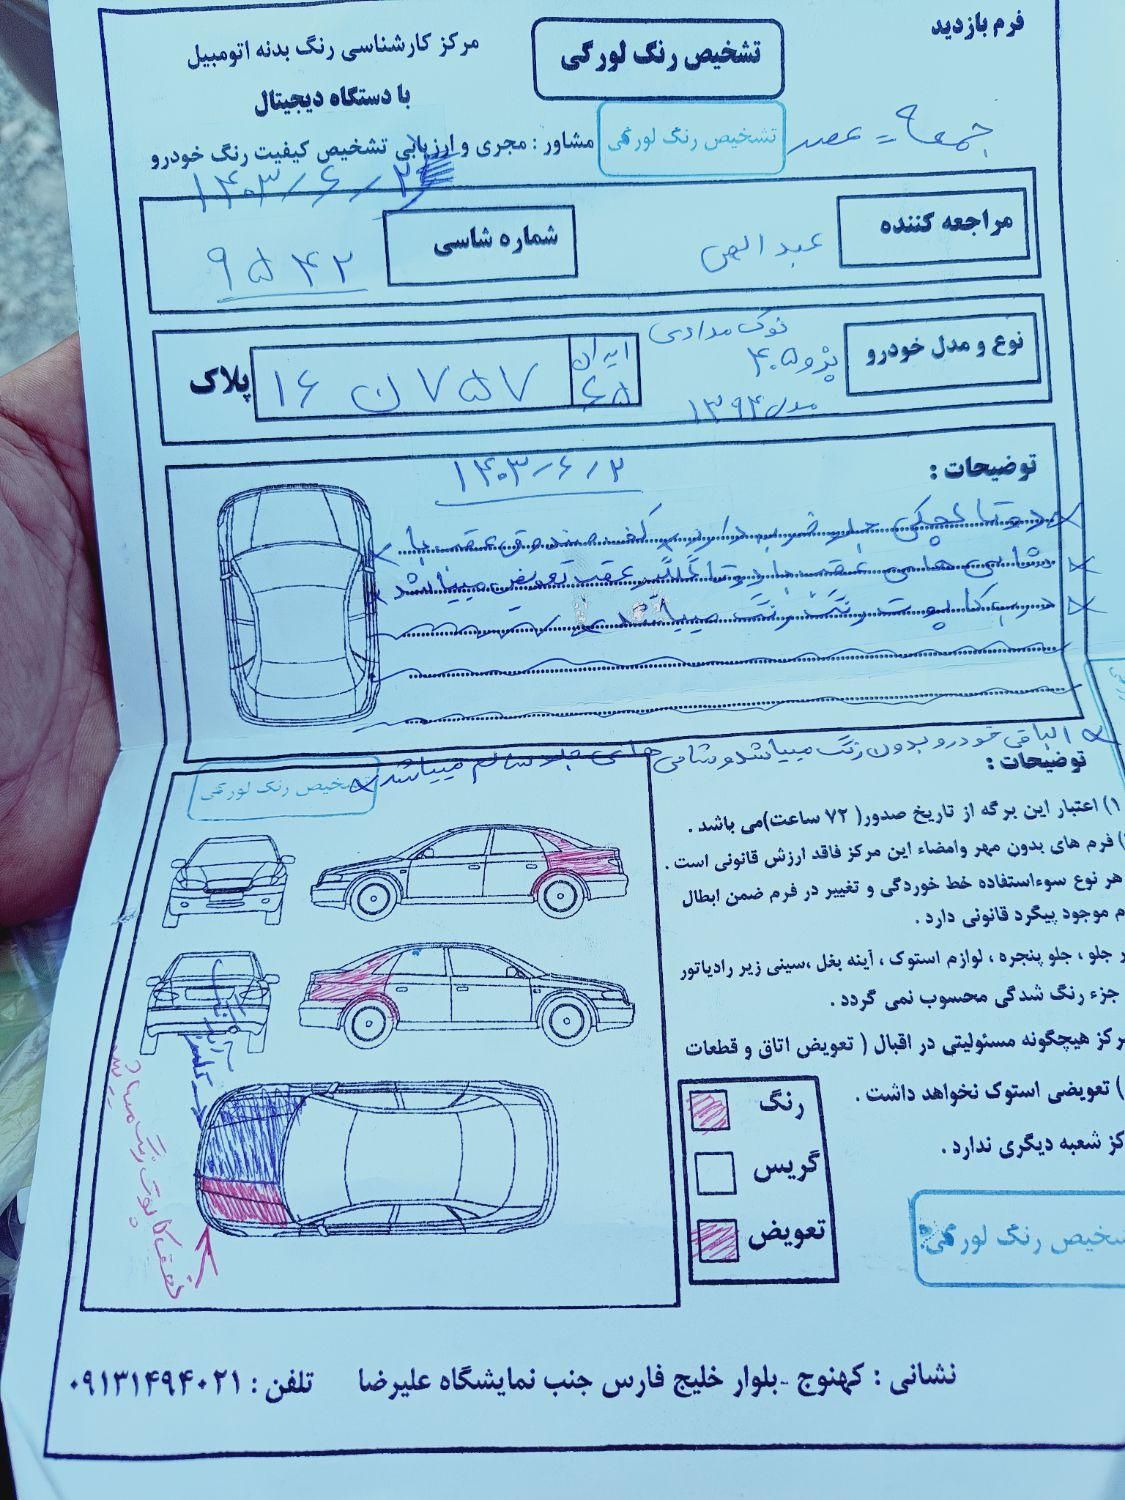 فرم بازدید
تشخیص رنگ لورگی
مرکز کارشناسی رنگ بدنه اتومبیل
با دستگاه دیجیتال
جمعه = عصر
تشخیص رنگ لورگی
مشاور : مجری و ارزیابی تشخیص کیفیت رنگ خودرو
۱۴۰۳/۶/۲
مراجعه کننده
عبدالهی
شماره شاسی
۹۵۴۲
نوع و مدل خودرو
نوک مدادی
پژو ۴۰۵
مدل ۱۳۹۴
ایران
۶۵
۷۵۷ ن ۱۶
پلاک
توضیحات :
۱۴۰۳/۶/۲
دوتا لچکی جلو ضرب دارد کف صندوق عقب با
شاسی های عقب با دوتا گلگیر عقب تعویض میباشد
درب کاپوت رنگ میباشد
الباقی خودرو بدون رنگ میباشد و شاسی های جلو سالم میباشد
توضیحات :
تشخیص رنگ لورگی
۱) اعتبار این برگه از تاریخ صدور( ۷۲ ساعت)می باشد .
) فرم های بدون مهر وامضاء این مرکز فاقد ارزش قانونی است .
هر نوع سوءاستفاده خط خوردگی و تغییر در فرم ضمن ابطال
م موجود پیگرد قانونی دارد .
ر جلو ، جلو پنجره ، لوازم استوک ، آینه بغل ،سینی زیر رادیاتور
جزء رنگ شدگی محسوب نمی گردد .
رکز هیچگونه مسئولیتی در اقبال ( تعویض اتاق و قطعات
) تعویضی استوک نخواهد داشت .
کز شعبه دیگری ندارد .
رنگ
گریس
تعویض
تشخیص رنگ لورگی
نشانی : کهنوج -بلوار خلیج فارس جنب نمایشگاه علیرضا تلفن : ۰۹۱۳۱۴۹۴۰۲۱